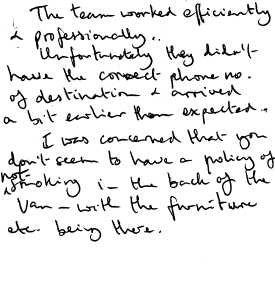 The team worked efficiently
& professionally..
Unfortunately they didn't
have the correct phone no.
of destination & arrived
a bit earlier than expected..
I was concerned that you
don't seem to have a policy of
not smoking in the back of the
Van – with the furniture
etc. being there.